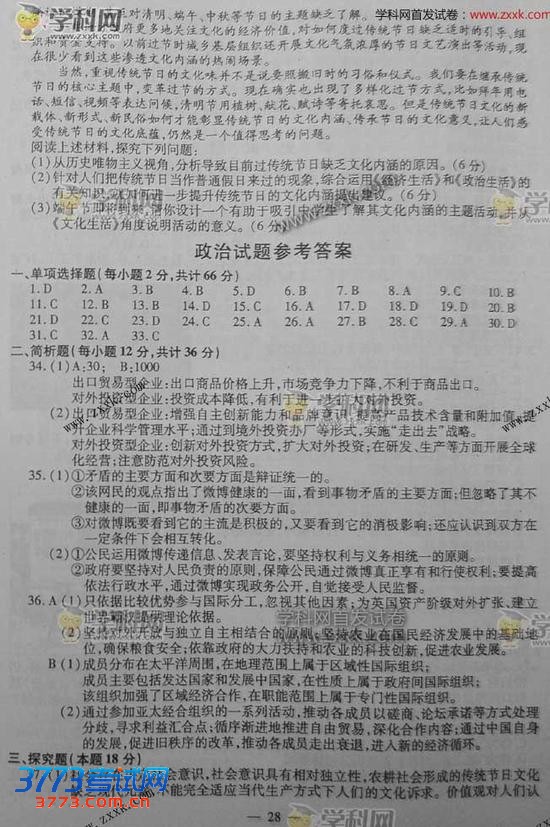 学科网首发试卷 www.zxxk.com
对清明、端午、中秋等节日的主题缺乏了解。
府更多地关注文化的经济价值，对如何度过传统节日缺乏适时的引导、组
织和资金支持。以前过节时城乡基层组织还开展文化气氛浓厚的节日文艺演出等活动，现
在很少看到这些渗透文化内涵的热闹场景。
当然，重视传统节日的文化味并不是说要照搬旧时的习俗和仪式。我们要在继承传统
节日的核心主题中，变革过节的方式。现在确实也出现了多样化过节方式，比如拜年用电
话、短信、视频等表达问候，清明节用植树、献花、赋诗等寄托哀思。但是传统节日文化的新
载体、新形式、新民俗如何才能彰显传统节日的文化内涵、传承节日的文化意义，让人们感
受传统节日的文化底蕴，仍然是一个值得思考的问题。
阅读上述材料，探究下列问题：
(1)从历史唯物主义视角，分析导致目前过传统节日缺乏文化内涵的原因。(6分)
(2)针对人们把传统节日当作普通假日来过的现象，综合运用《经济生活》和《政治生活》的
有关知识，就如何进一步提升传统节日文化内涵提出建议。(6分)
(3)端午节即将到来，请你设计一个有助于吸引大学生了解其文化内涵的主题活动，并从
《文化生活》角度说明活动的意义。(6分)
政治试题参考答案
一、单项选择题(每小题2分，共计66分)
1.D 2.A 3.B 4.C 5.D 6.B 7.B 8.A 9.C 10.B
11.C 12.B 13.B 14.D 15.C 16.A 17.D 18.D 19.D 20.B
21.D 22.C 23.D 24.C 25.A 26.D 27.B 28.C 29.A 30.D
31.C 32.A 33.C
二、简析题(每小题12分，共计36分)
34.(1)A;30; B;1000
出口贸易型企业：出口商品价格上升，市场竞争力下降，不利于商品出口。
对外投资型企业：投资成本降低，有利于进一步扩大对外投资。
(2)出口贸易型企业：增强自主创新能力和品牌意识，提高产品技术含量和附加值，提
升企业科学管理水平；通过到境外投资办厂等形式，实施“走出去”战略。
对外投资型企业：创新对外投资方式，扩大对外投资；在研发、生产等方面开展全球
化经营；注意防范对外投资风险。
35.(1)①矛盾的主要方面和次要方面是辩证统一的。
②该网民的观点指出了微博健康的一面，看到事物矛盾的主要方面；但忽略了其不
健康的一面，即事物矛盾的次要方面。
③对微博既要看到它的主流是积极的，又要看到它的消极影响；还应认识到双方在
一定条件下会相互转化。
(2)①公民运用微博传递信息、发表言论，要坚持权利与义务相统一的原则。
②政府要坚持对人民负责的原则，保障公民通过微博真正享有和行使权利；要提高
依法行政水平，通过微博实现政务公开，自觉接受人民监督。
36.A(1)只依据比较优势参与国际分工，忽视其他因素；为英国资产阶级对外扩张、建立
世界霸权提供理论依据。
(2)坚持对外开放与独立自主相结合的原则；坚持农业在国民经济发展中的基础地
位，确保粮食安全；依靠政府的大力扶持和农业的科技创新，促进农业发展。
B(1)成员分布在太平洋周围，在地理范围上属于区域性国际组织；
成员主要包括发达国家和发展中国家，在性质上属于政府间国际组织；
该组织加强了区域经济合作，在职能范围上属于专门性国际组织。
(2)通过参加亚太经合组织的一系列活动，推动各成员以磋商、论坛承诺等方式处理
分歧，寻求利益汇合点；循序渐进地推进自由贸易，深化合作内容；通过中国自身
的发展，促进旧秩序的改革，推动各成员走出衰退，进入新的经济循环。
三、探究题(本题18分)
37.(1)社会存在决定社会意识，社会意识具有相对独立性，农耕社会形成的传统节日文化
缺乏现代元素，不能完全适应当代生产方式下人们的文化诉求。价值观对人们认
— 28 —
3773考试网
3773.com.cn
学科网